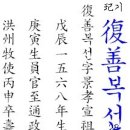 紀기
復善복선
復善복선字景孝宣祖
戊辰一五六八年生
庚寅生員官至通政
洪州牧使丙申卒壽